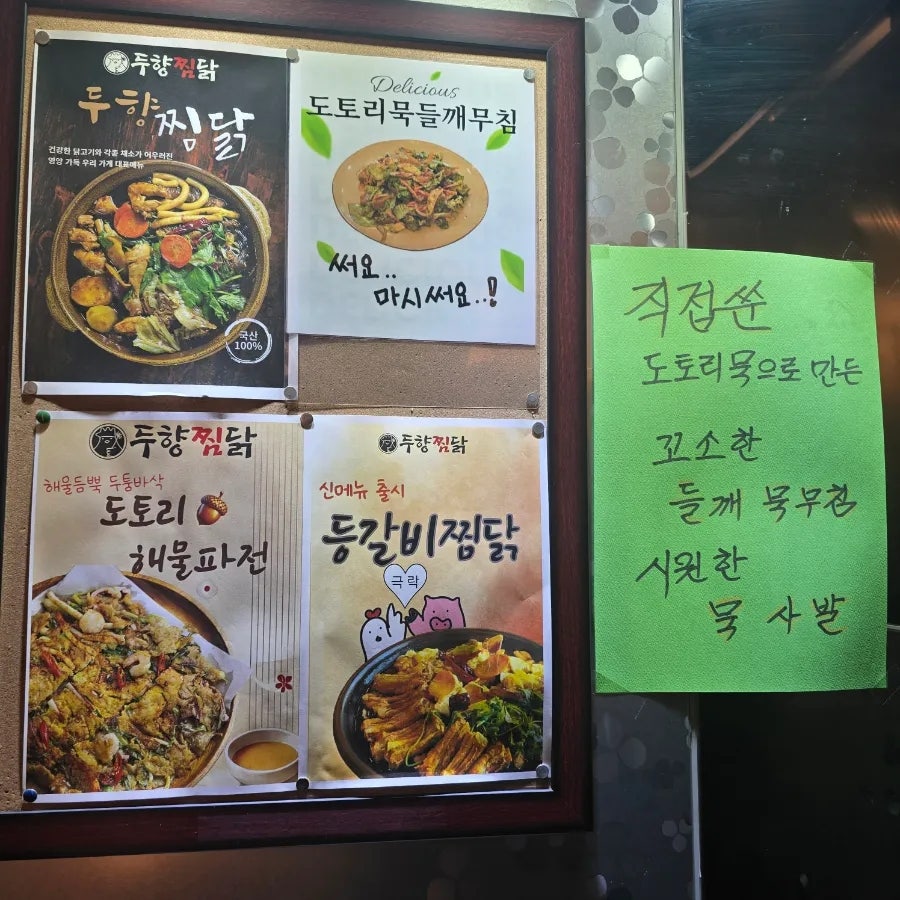 두향찜닭
두향
찜닭
건강한 닭고기와 각종 채소가 어우러진
영양 가득 우리 가게 대표메뉴
국산
100%
Delicious
도토리묵들깨무침
써요..
마시써요..!
두향찜닭
해물듬뿍 두툼바삭
도토리
해물파전
두향찜닭
신메뉴 출시
등갈비찜닭
극락
직접쑨
도토리묵으로 만든
꼬소한
들깨 묵무침
시원한
묵 사발